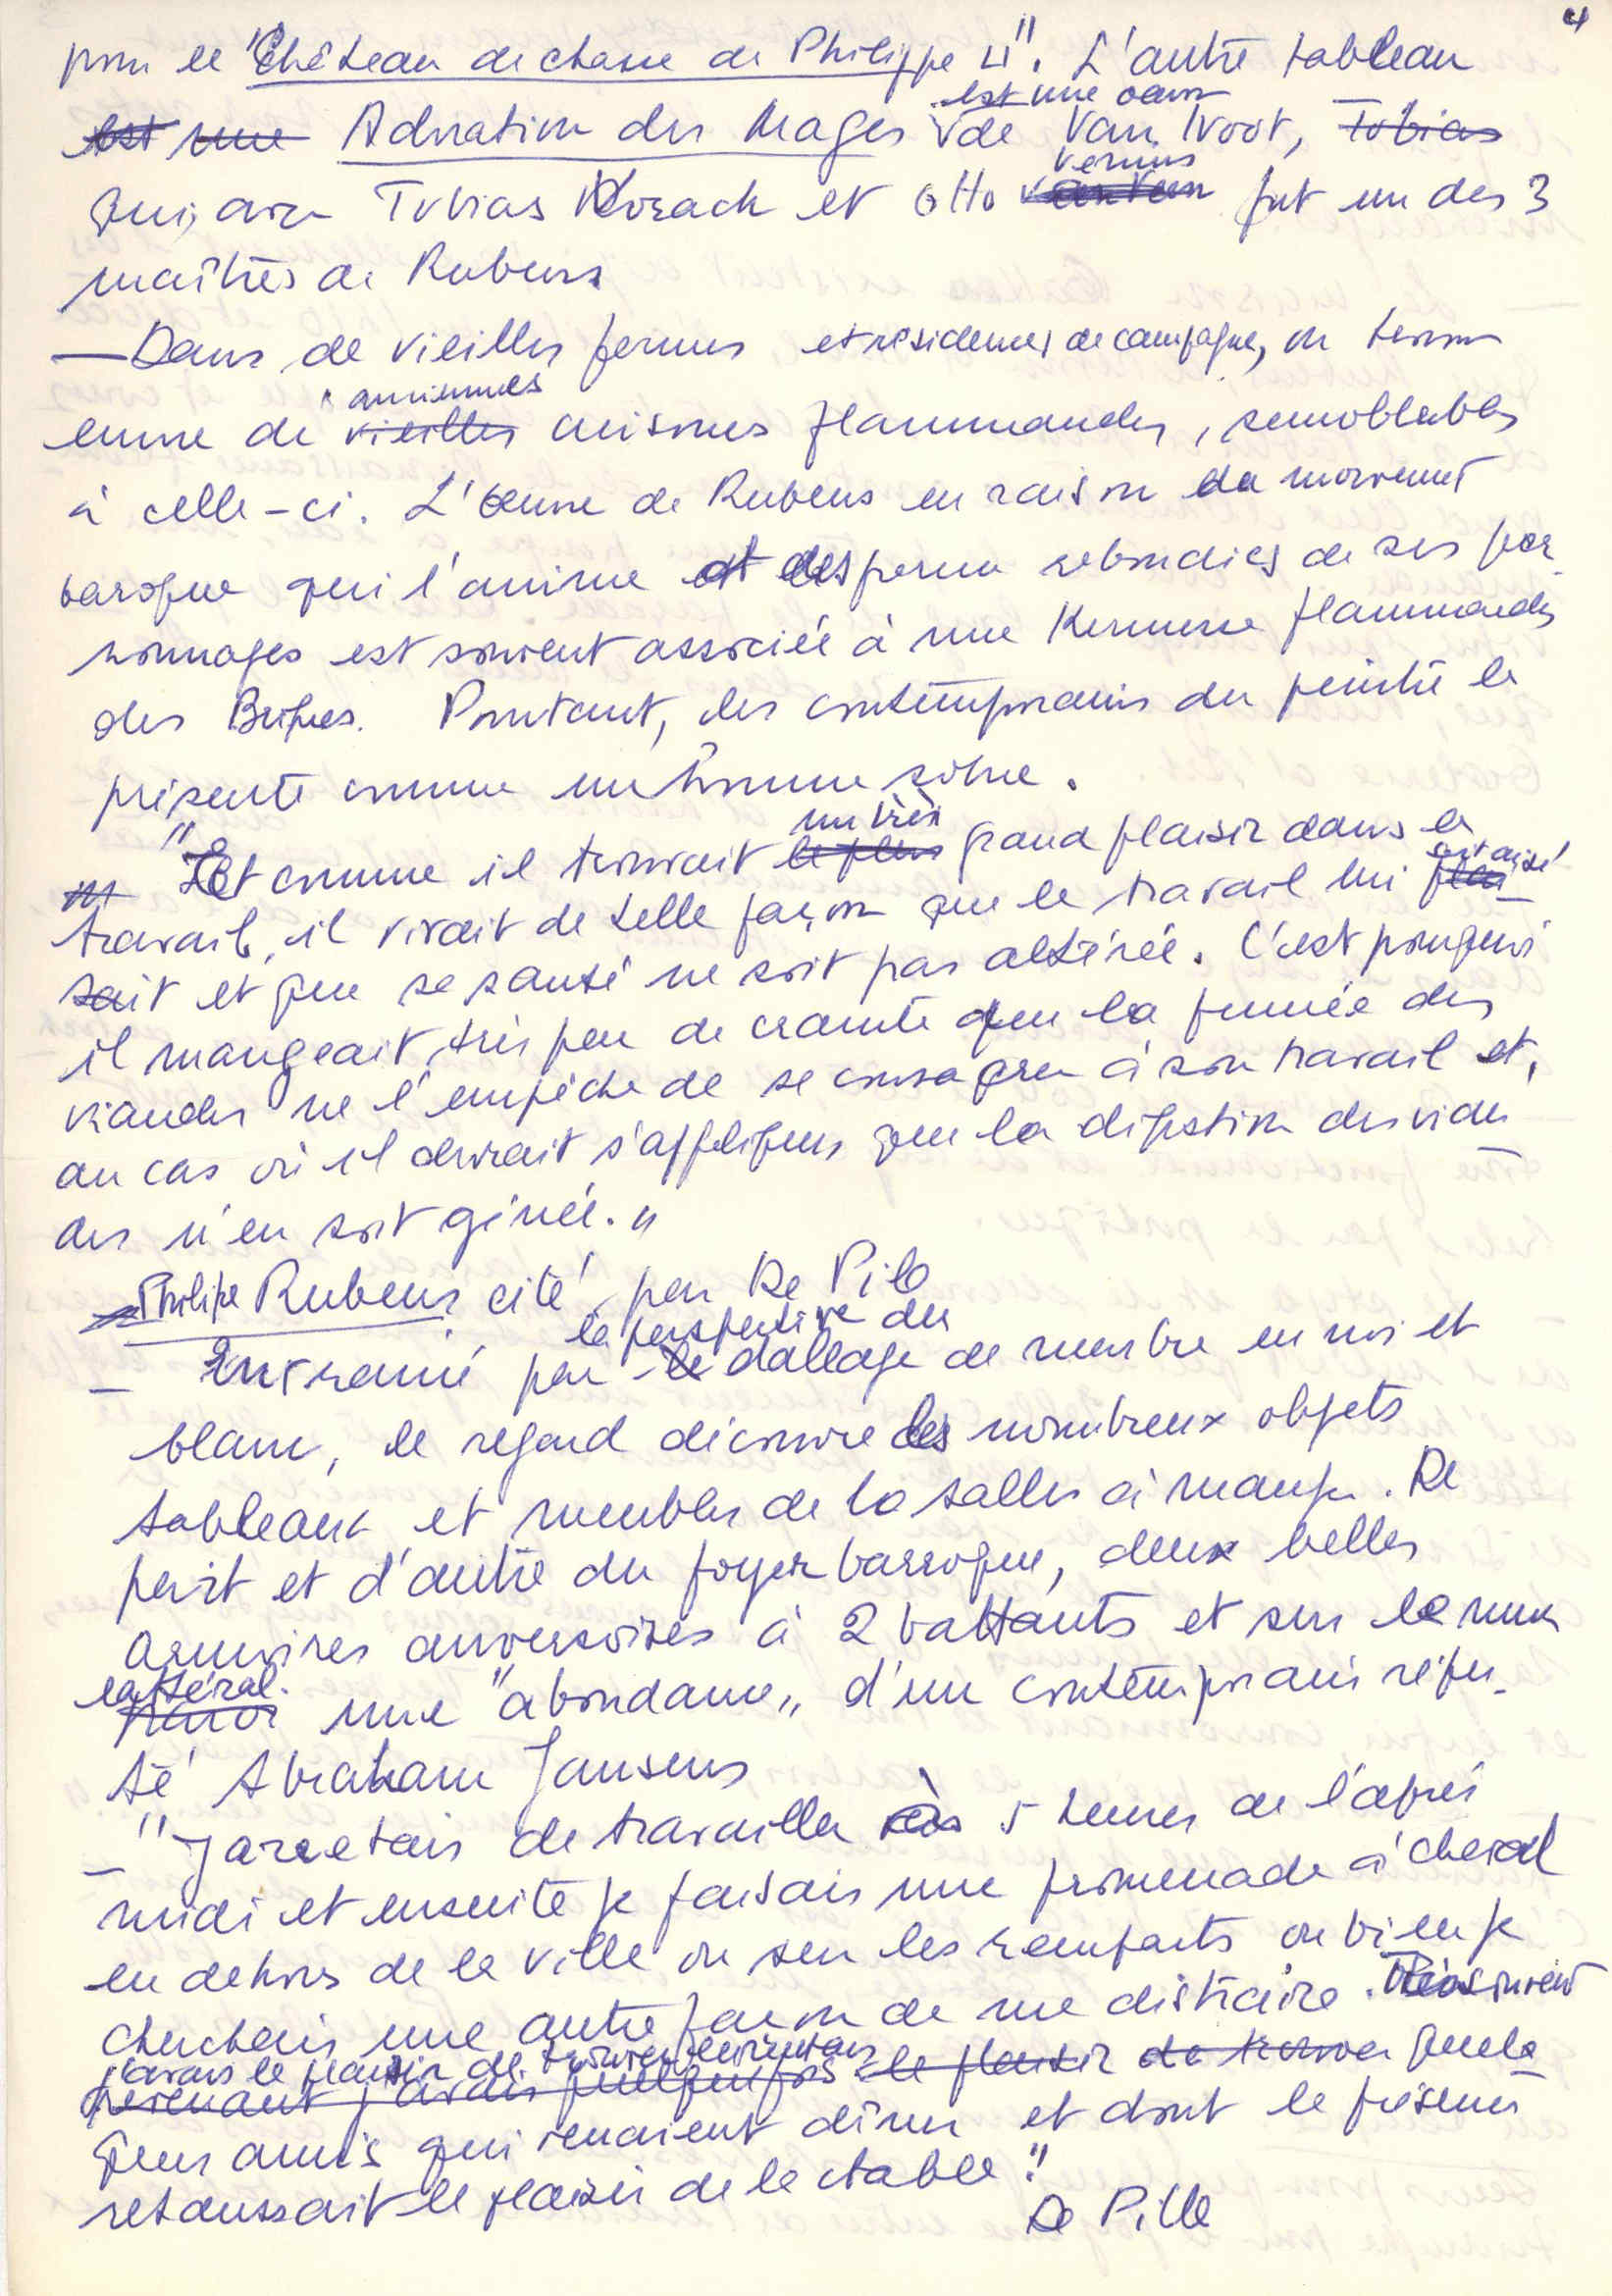 4
pour le "Château de chasse de Philippe 4". L'autre tableau
est une Adoration des Mages est une œuvre de Van Noot, Tobias
qui, avec Tobias Vorach et Otto Venius fut un des 3
maîtres de Rubens
— Dans de vieilles fermes et résidences de campagne, on trouve
encore de vieilles anciennes cuisines flammandes, semblables
à celle-ci. L'œuvre de Rubens en raison du mouvement
baroque qui l'anime et des formes rebondies de ses per-
sonnages est souvent associée à une Kermesse flammande
des Bripes. Pourtant, les contemporains du peintre le
présente comme un homme sobre.
"Et comme il trouvait le plus un très grand plaisir dans le
travail, il vivait de telle façon que le travail lui soit aisé
sait et que sa santé ne soit pas altérée. C'est pourquoi
il mangeait très peu de crainte que la fumée des
viandes ne l'empêche de se consacrer à son travail et,
au cas où il devrait s'appliquer que la digestion des vian
des n'en soit gênée."
Philipe Rubens, cité par De Pile
— Entrainé par le la perspective du dallage de marbre en noi et
blanc, le regard découvre les nombreux objets
tableaux et meubles de la salles à manger. De
part et d'autre du foyer barroque, deux belles
armoires anversoises à 2 battants et sur le mur
paroi lattéral. une "abondance" d'un contemporain répu-
té Abraham Jansens
— "J'arretais de travailler dès à 5 heures de l'après
midi et ensuite je faisais une promenade à cheval
en dehors de la ville ou sur les remparts ou bien je
cherchais une autre façon de me distraire. Très souvent
j'avais le plaisir de trouver en rentrant
revenant j'avais quelquefois le plaisir de trouver quelq
ques amis qui venaient dîner et dont la présence
rehaussait le plaisir de la table."
De Pille